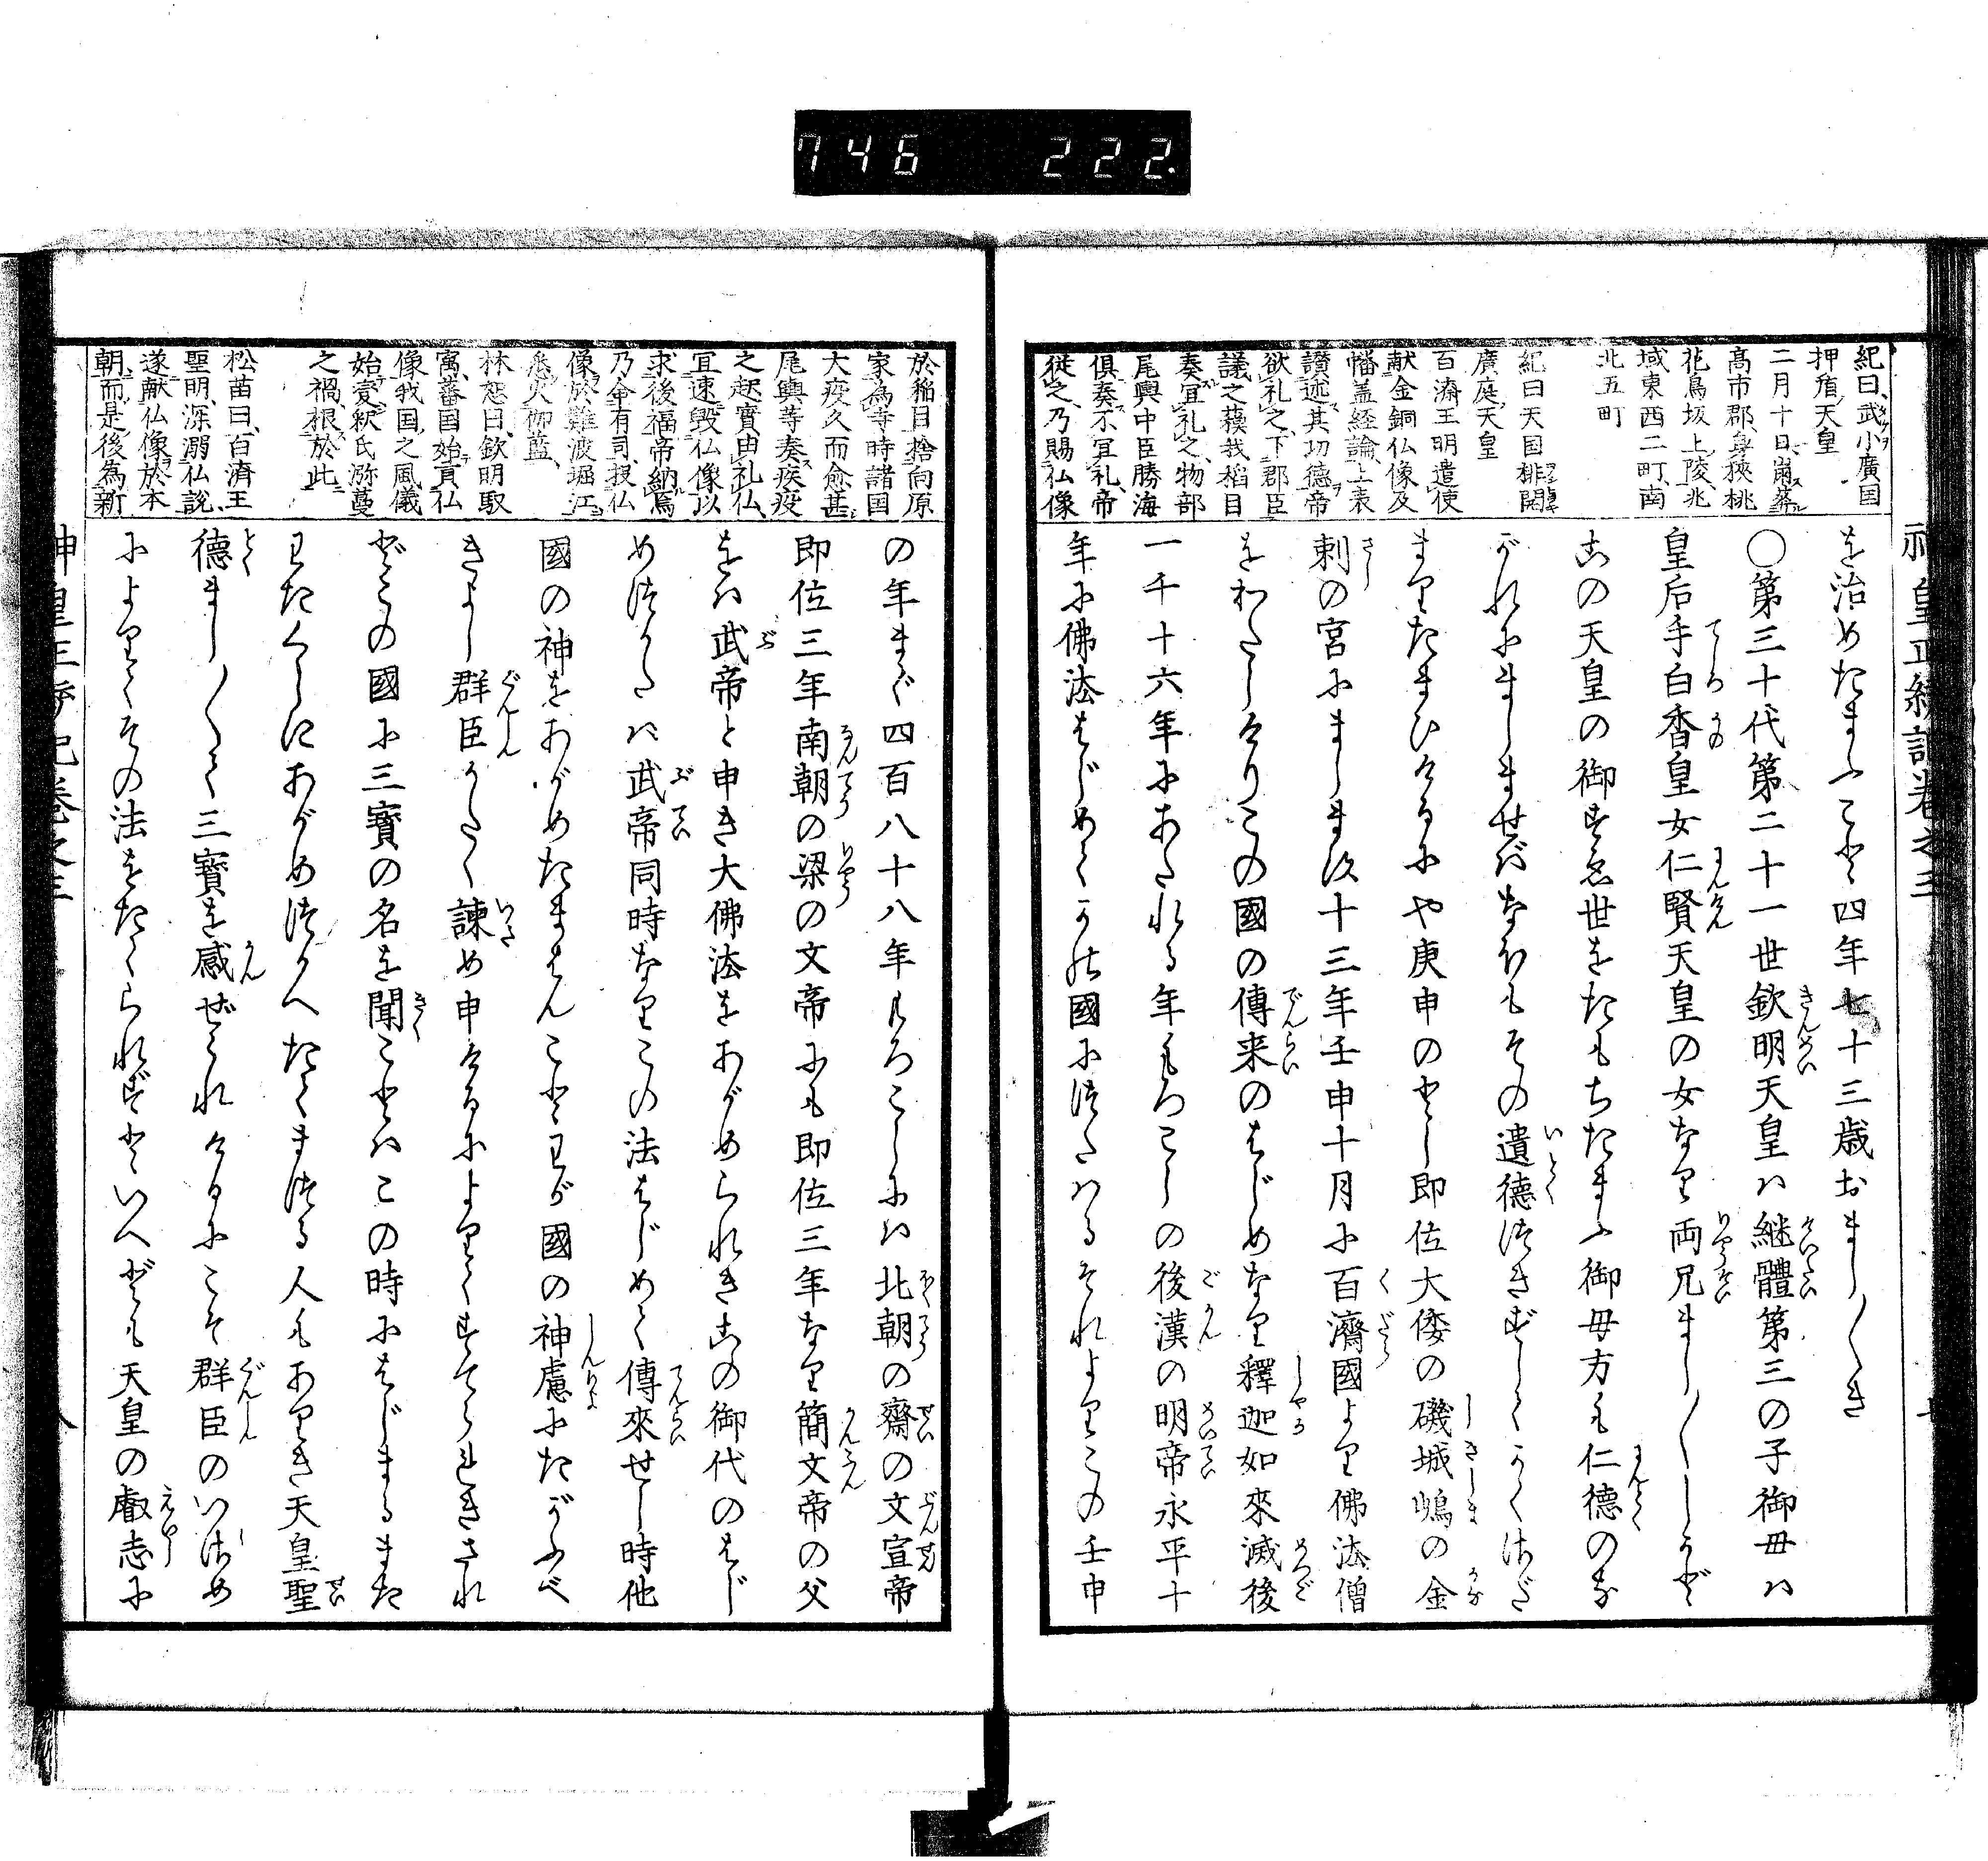 746 222.
紀曰武小廣国
押盾天皇
二月十日崩葬
髙市郡身狹桃
花鳥坂上陵兆
域東西二町南
北五町
紀曰天国排開
廣庭天皇
百濟王明遣使
献金銅仏像及
幡盖経論上表
讃述其功德帝
欲礼之下郡臣
議之蘓我稻目
奏宜礼之物部
尾輿中臣勝海
俱奏不冝礼帝
従之乃賜仏像
を治めたまふこと四年七十三歳おまし〱き
〇第三十代第二十一世欽明天皇ハ継體第三の子御母ハ
皇后手白香皇女仁賢天皇の女なり両兄まし〱しかど
この天皇の御すゑ世をたもちたまふ御母方も仁德のな
がれにましませばなほもその遺德つきずしてかくさだ
まりたまひけるにや庚申のとし即位大倭の磯城嶋の金
刺の宮にまします十三年壬申十月に百濟國より佛法僧
をわたしけりこの國の傳来のはじめなり釋迦如來滅後
一千十六年にあたれる年もろこしの後漢の明帝永平十
年に佛法はじめてかの國につたハるそれよりこの壬申
於稲目捨向原
家為寺時諸国
大疫久而愈甚
尾輿等奏疾疫
之起實由礼仏
宜速毀仏像以
求後福帝納焉
乃命有司投仏
像於難波堀江
悉火伽藍
林恕曰欽明馭
寓蕃国始貢仏
像我国之風儀
始變釈氏弥蔓
之禍根於此
松苗曰百濟王
聖明深溺仏説
遂献仏像於本
朝而是後為新
の年まで四百八十八年もろこしにハ北朝の齋の文宣帝
即位三年南朝の梁の文帝にも即位三年なり簡文帝の父
をハ武帝と申き大佛法をあがめられきこの御代のはじ
めつかたハ武帝同時なりこの法はじめて傳來せし時他
國の神をあがめたまはんことわが國の神慮にたがふべ
きよし群臣かたく諫め申けるによりてすてられきされ
どこの國に三寶の名を聞ことハこの時にはじまるまた
わたくしにあがめつかへたてまつる人もありき天皇聖
德まし〱て三寶を感ぜられけるにこそ群臣のいさめ
によりてその法をたてられずといへども天皇の叡志に